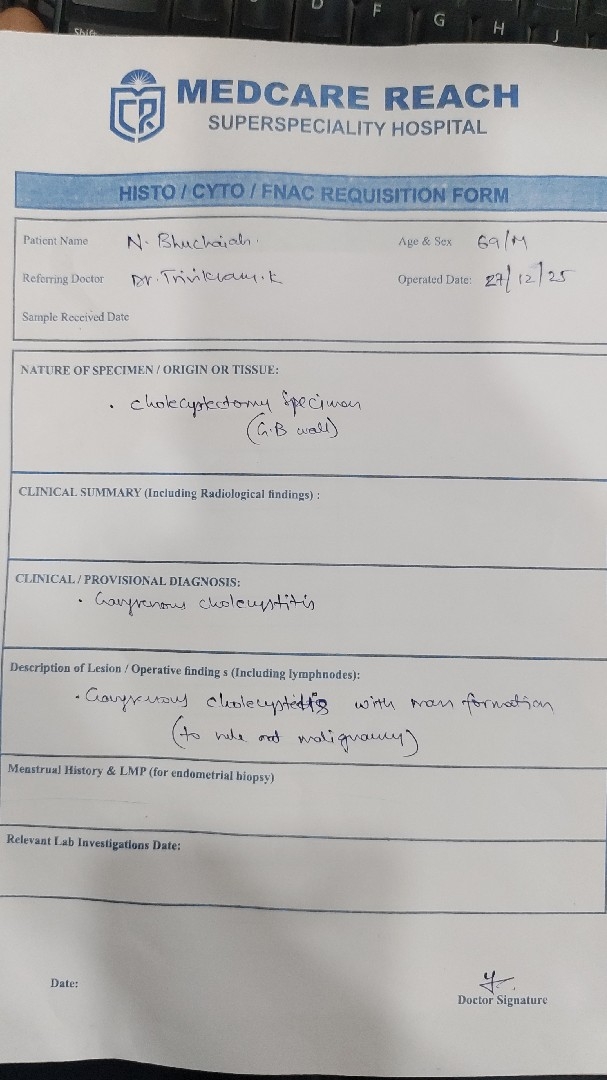 Shift
D
F
G
H
J
MEDCARE REACH
SUPERSPECIALITY HOSPITAL
HISTO / CYTO / FNAC REQUISITION FORM
Patient Name N. Bhuchaiah. Age & Sex 69/M
Referring Doctor Dr. Trivikram.K Operated Date: 27/12/25
Sample Received Date
NATURE OF SPECIMEN / ORIGIN OR TISSUE:
• Cholecystectomy Specimen
(G.B wall)
CLINICAL SUMMARY (Including Radiological findings) :
CLINICAL / PROVISIONAL DIAGNOSIS:
• Gangrenous cholecystitis
Description of Lesion / Operative finding s (Including lymphnodes):
• Gangrenous cholecystitis with mass formation
(to rule out malignancy)
Menstrual History & LMP (for endometrial biopsy)
Relevant Lab Investigations Date:
Date:
Doctor Signature